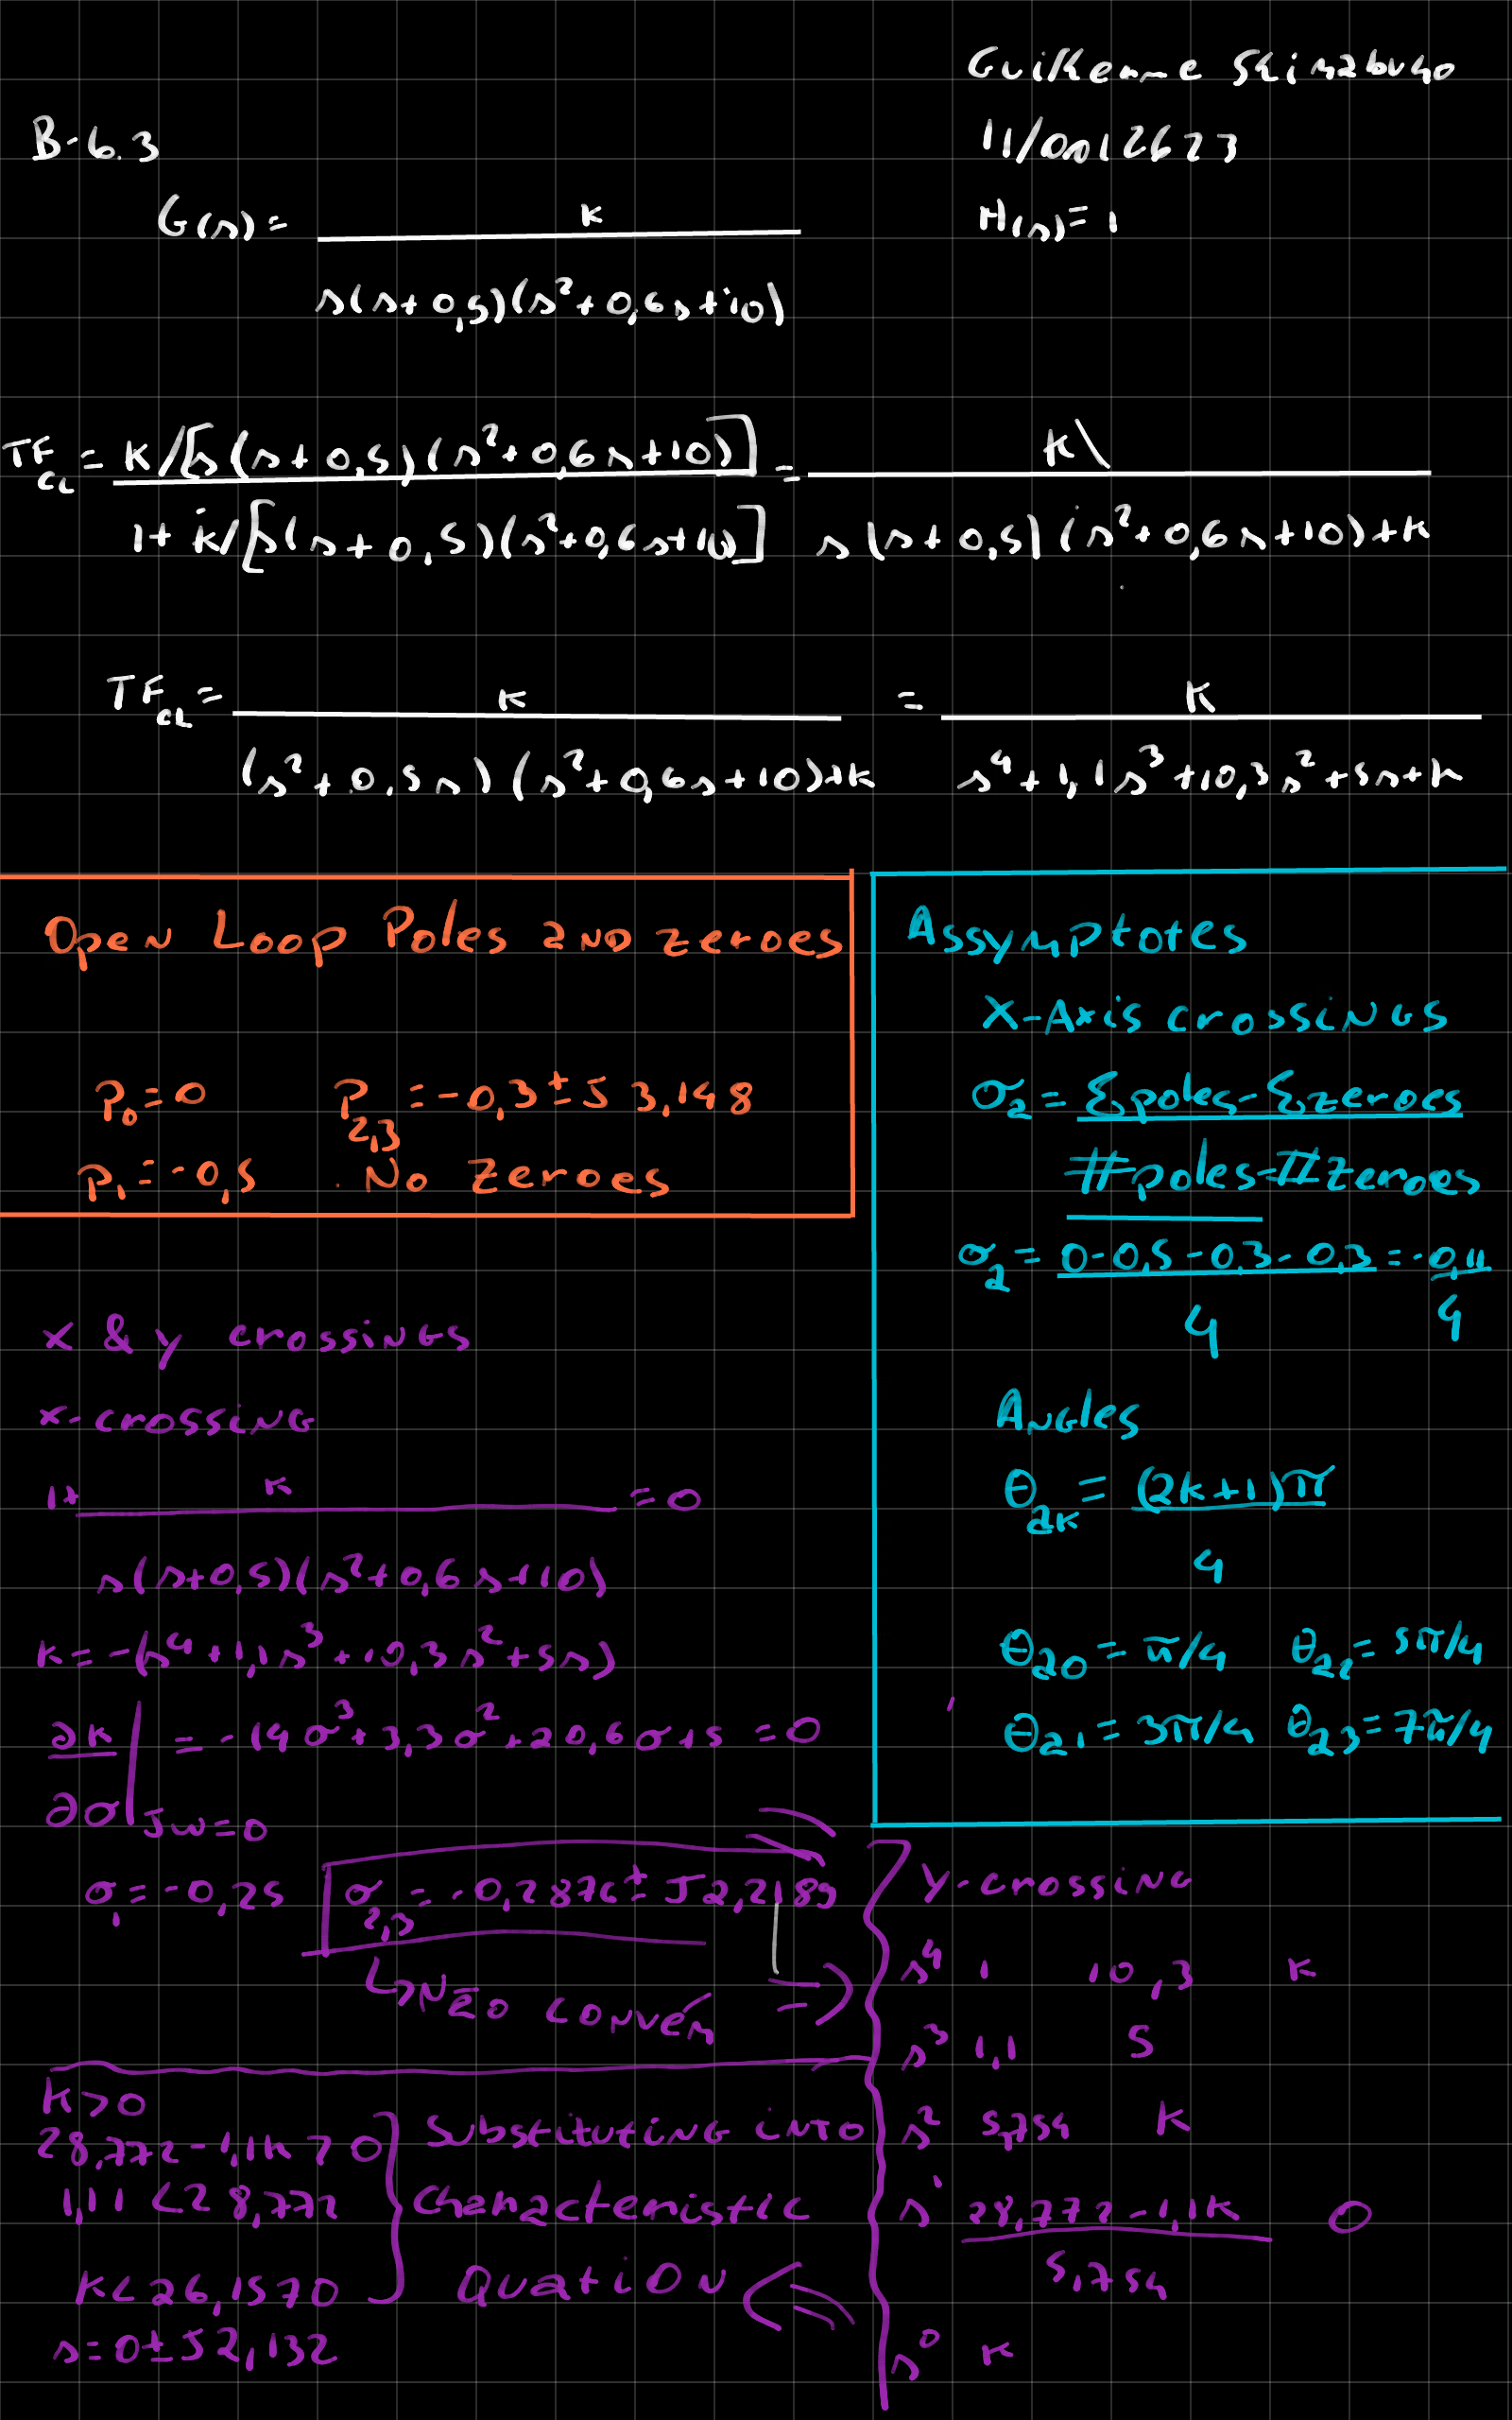 Guilherme Shimabuko
B-6.3
11/0012623
G(s)= K / s(s+0,5)(s²+0,6s+10)
H(s)=1
TF_CL = K/[s(s+0,5)(s²+0,6s+10)] / 1+K/[s(s+0,5)(s²+0,6s+10)] = K\ / s(s+0,5)(s²+0,6s+10)+K
TF_CL = K / (s²+0,5s)(s²+0,6s+10)+K = K / s⁴+1,1s³+10,3s²+5s+K
Open Loop Poles and zeroes
P₀=0 P₂,₃=-0,3±J3,148
P₁=-0,5 No zeroes
Assymptotes
X-Axis crossings
σa = Σpoles-Σzeroes / #poles-#zeroes
σa = 0-0,5-0,3-0,3 / 4 = -0,11 / 4
Angles
θak = (2k+1)π / 4
θa0=π/4 θa2=5π/4
θa1=3π/4 θa3=7π/4
x & y crossings
x-crossing
1+ K / s(s+0,5)(s²+0,6s+10) =0
K=-(s⁴+1,1s³+10,3s²+5s)
∂K/∂σ |Jω=0 = -(4σ³+3,3σ²+20,6σ+5=0
σ₁=-0,25 σ₂,₃=-0,2876±J2,2189
↳Não convém =>
Y-crossing
s⁴ 1 10,3 K
s³ 1,1 5
s² 5,754 K
s¹ 28,772-1,1K / 5,754 0
s⁰ K
K>0
28,772-1,1K>0
1,11<28,772
K<26,1570
s=0±J2,132
Substituting into
characteristic
Quation <=